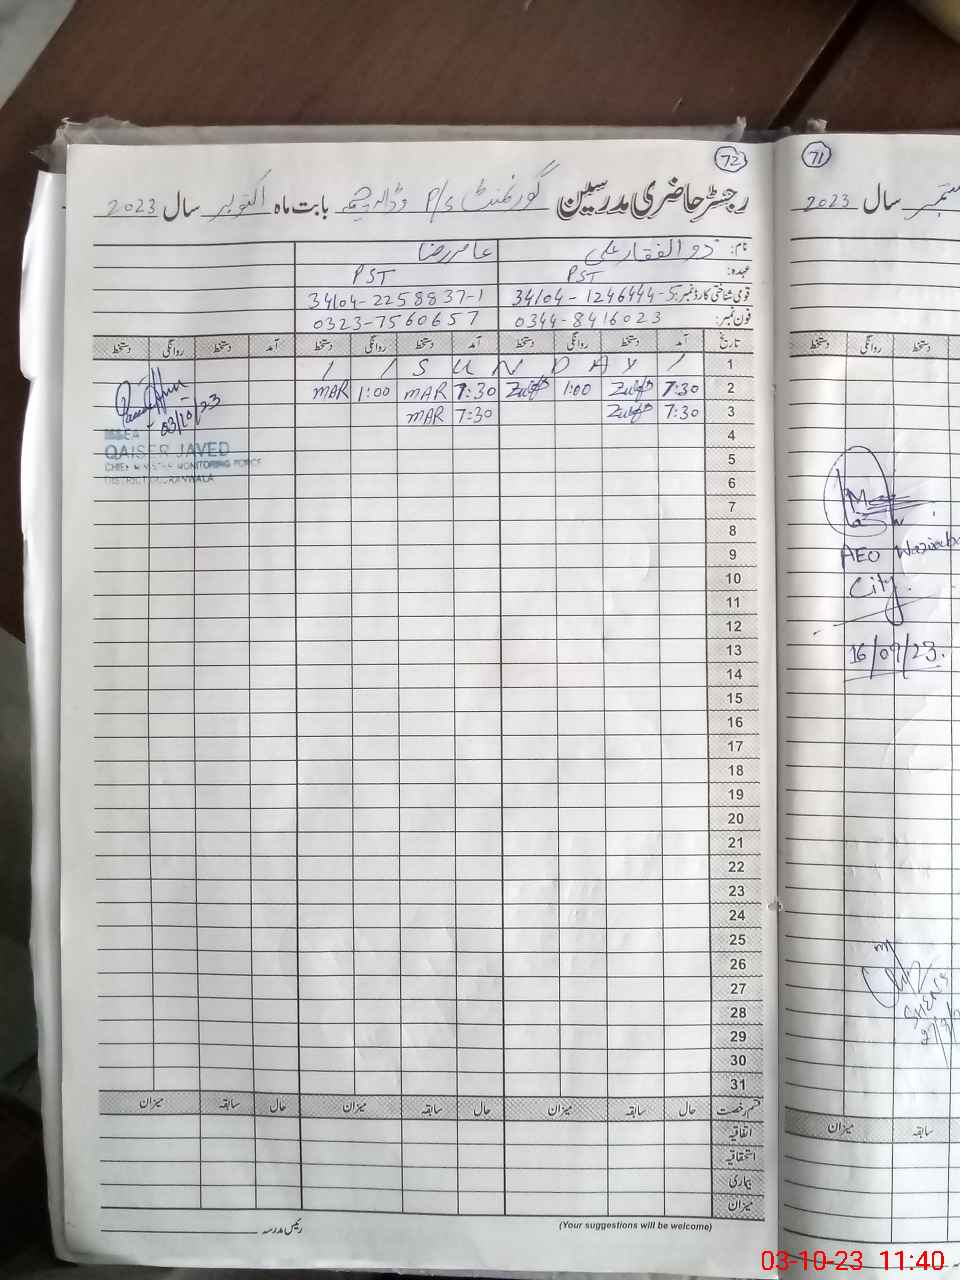 72
رجسٹر حاضری مدرسین گورنمنٹ P/S وڈالہ چیمہ بابت ماہ اکتوبر سال 2023
نام: ذوالفقار علی عامر رضا
عہدہ: PST PST
قومی شناختی کارڈ نمبر: 34104-1246444-5 34104-2258837-1
فون نمبر: 0344-8416023 0323-7560657
تاریخ آمد دستخط روانگی دستخط آمد دستخط روانگی دستخط آمد دستخط روانگی دستخط
1 / / S U N D A Y /
2 7:30 Zulfi 1:00 Zulfi 7:30 MAR 1:00 MAR
3 7:30 Zulfi 7:30 MAR
03/10/23
M&EA
QAISER JAVED
CHIEF MINISTER MONITORING FORCE
DISTRICT GUJRANWALA
4
5
6
7
8
9
10
11
12
13
14
15
16
17
18
19
20
21
22
23
24
25
26
27
28
29
30
31
قسم رخصت حال سابقہ میزان حال سابقہ میزان حال سابقہ میزان
اتفاقیہ
استحقاقیہ
بیماری
میزان
(Your suggestions will be welcome)
رئیس مدرسہ
71
ستمبر سال 2023
دستخط روانگی دستخط
AEO
City.
16/09/23.
سابقہ میزان
03-10-23 11:40